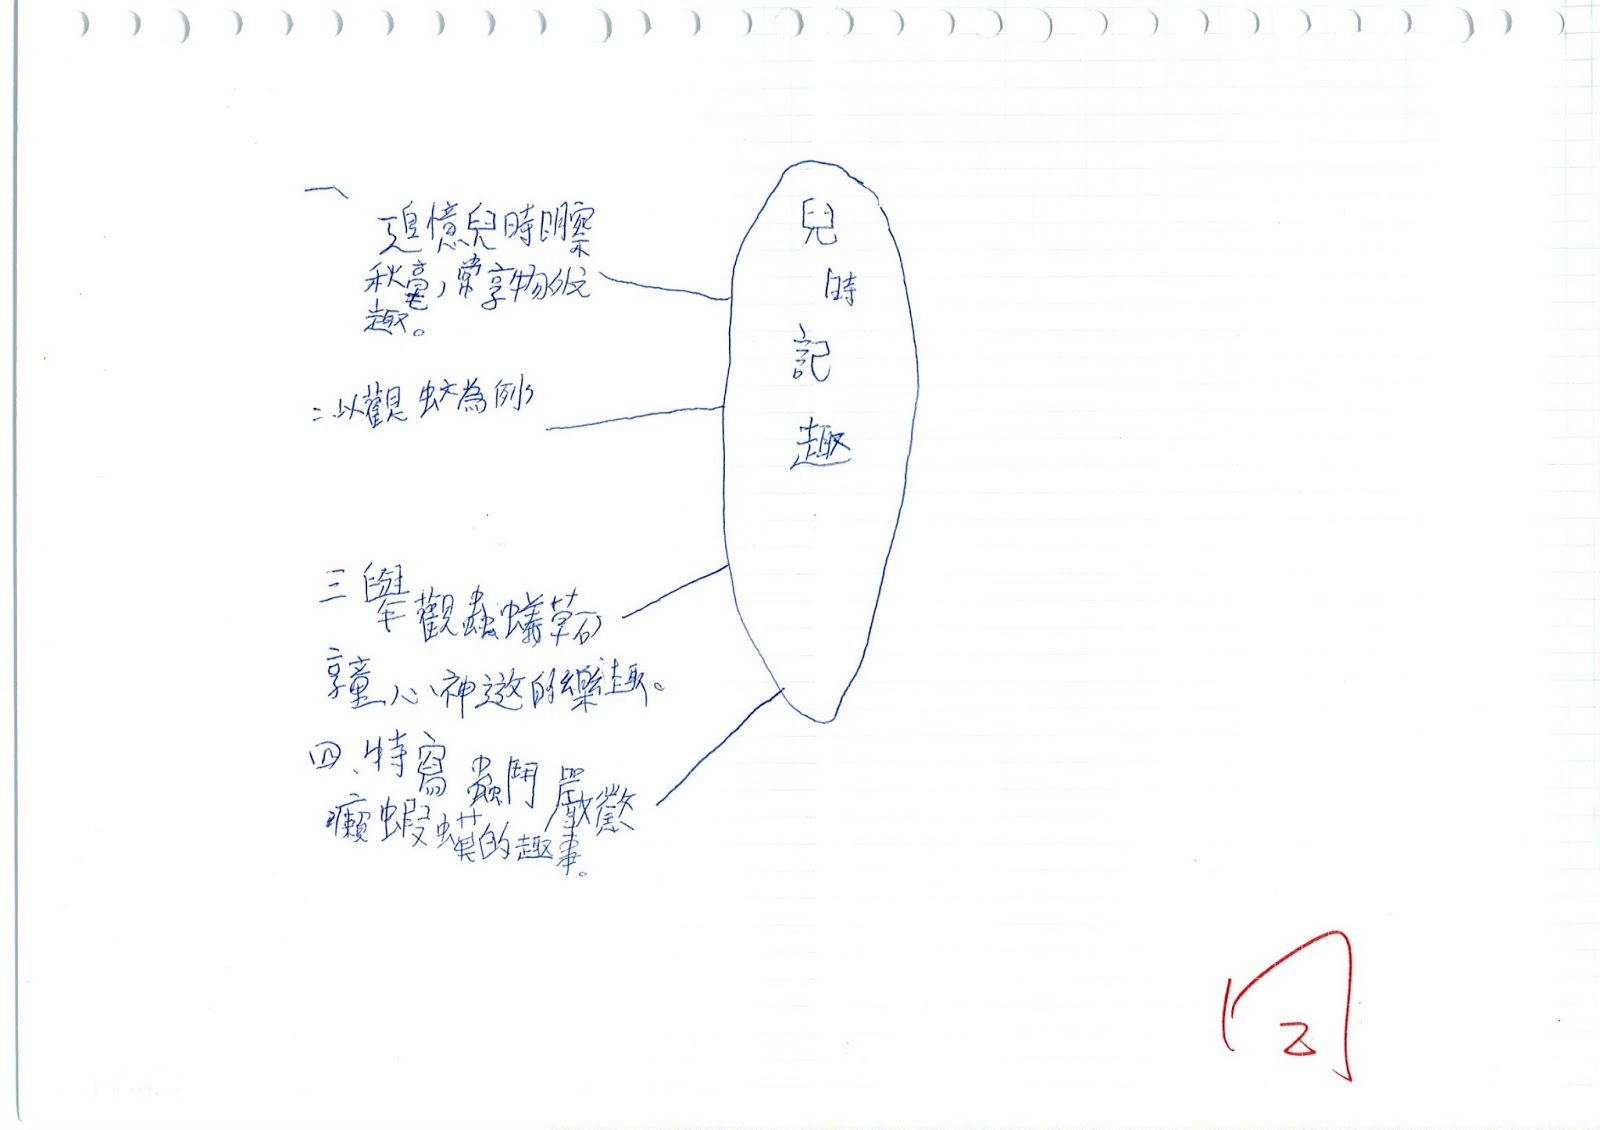 兒
時
記
趣
一、
追憶兒時明察
秋毫，常享物外
趣。
二以觀蚊為例
三舉觀蟲蟻草
享童心神遊的樂趣。
四、特寫蟲鬥嚴懲
癩蝦蟆的趣事。